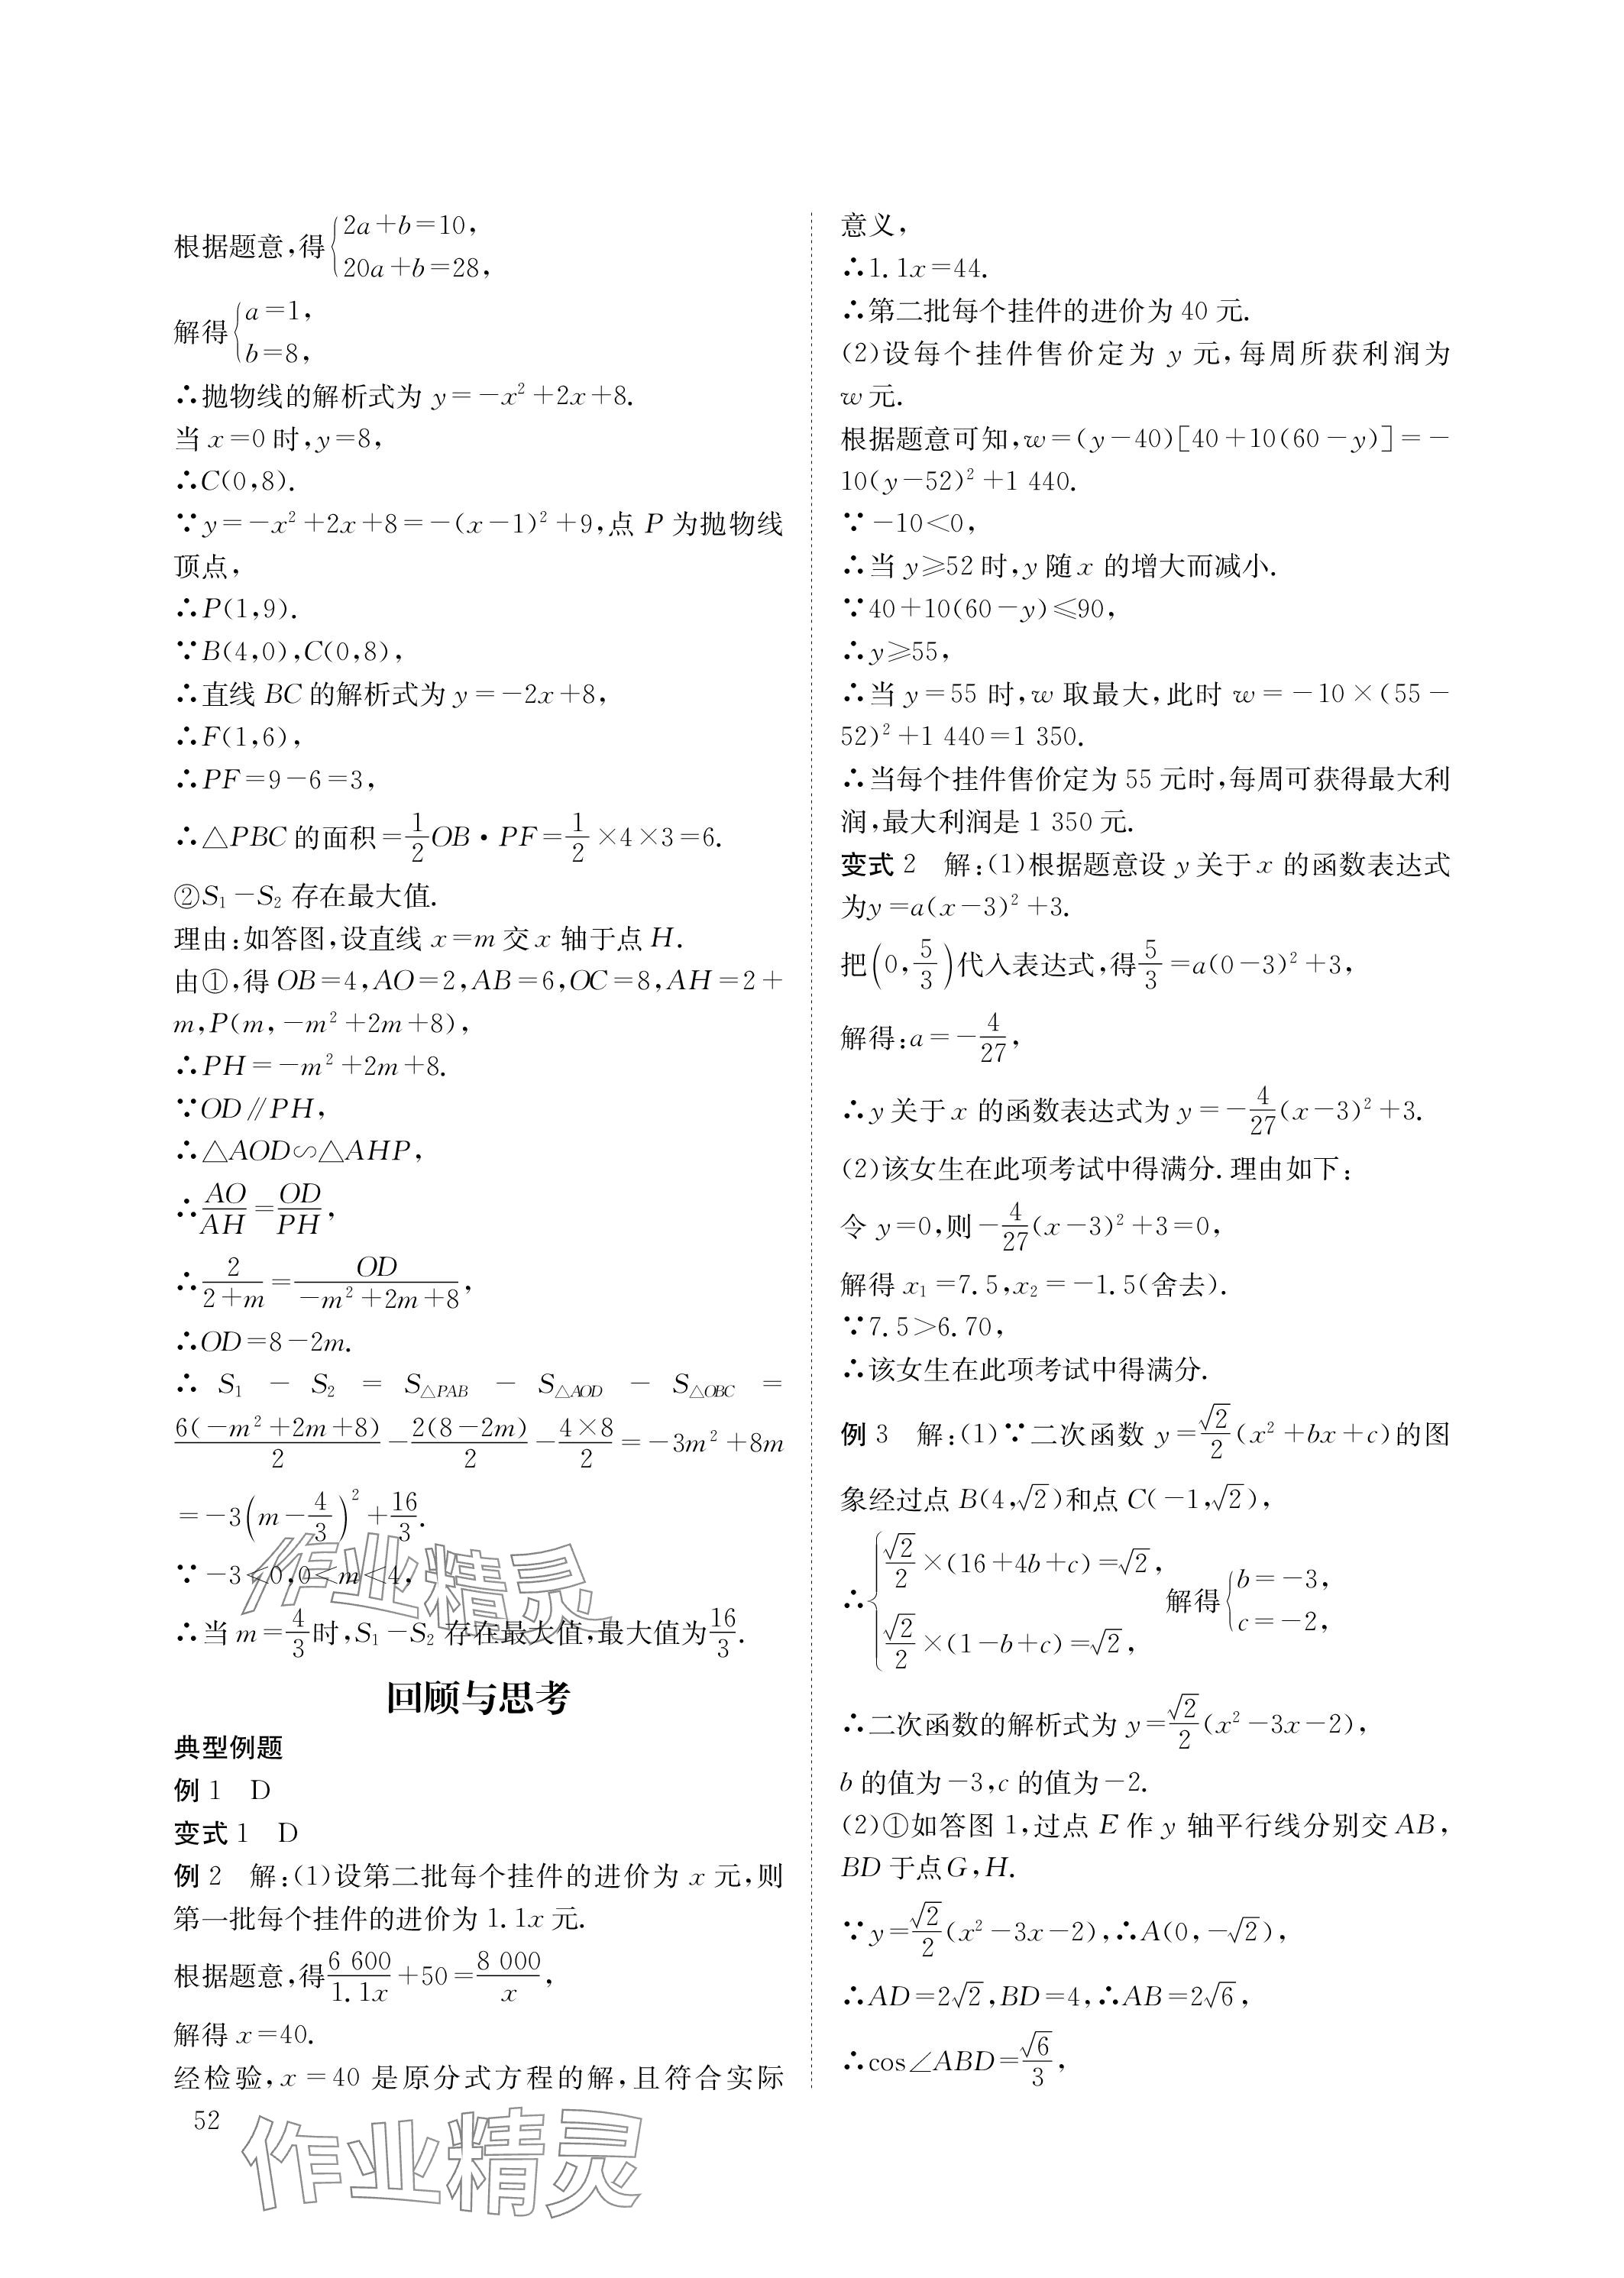 根据题意,得{2a+b=10,
20a+b=28,
解得{a=1,
b=8,
∴抛物线的解析式为 y=-x²+2x+8.
当 x=0 时,y=8,
∴C(0,8).
∵y=-x²+2x+8=-(x-1)²+9,点 P 为抛物线
顶点,
∴P(1,9).
∵B(4,0),C(0,8),
∴直线 BC 的解析式为 y=-2x+8,
∴F(1,6),
∴PF=9-6=3,
∴△PBC 的面积=1/2 OB·PF=1/2×4×3=6.
②S₁-S₂ 存在最大值.
理由:如答图,设直线 x=m 交 x 轴于点 H.
由①,得 OB=4,AO=2,AB=6,OC=8,AH=2+
m,P(m,-m²+2m+8),
∴PH=-m²+2m+8.
∵OD∥PH,
∴△AOD∽△AHP,
∴AO/AH=OD/PH,
∴2/(2+m)=OD/(-m²+2m+8),
∴OD=8-2m.
∴ S₁ - S₂ = S△PAB - S△AOD - S△OBC =
6(-m²+2m+8)/2-2(8-2m)/2-4×8/2=-3m²+8m
=-3(m-4/3)²+16/3.
∵-3<0,0<m<4,
∴当 m=4/3时,S₁-S₂ 存在最大值,最大值为16/3.
回顾与思考
典型例题
例 1 D
变式 1 D
例 2 解:(1)设第二批每个挂件的进价为 x 元,则
第一批每个挂件的进价为 1.1x 元.
根据题意,得6 600/1.1x+50=8 000/x,
解得 x=40.
经检验,x=40 是原分式方程的解,且符合实际
52
意义,
∴1.1x=44.
∴第二批每个挂件的进价为 40 元.
(2)设每个挂件售价定为 y 元,每周所获利润为
w 元.
根据题意可知,w=(y-40)[40+10(60-y)]=-
10(y-52)²+1 440.
∵-10<0,
∴当 y≥52 时,y 随 x 的增大而减小.
∵40+10(60-y)≤90,
∴y≥55,
∴当 y=55 时,w 取最大,此时 w=-10×(55-
52)²+1 440=1 350.
∴当每个挂件售价定为 55 元时,每周可获得最大利
润,最大利润是 1 350 元.
变式 2 解:(1)根据题意设 y 关于 x 的函数表达式
为y=a(x-3)²+3.
把(0,5/3)代入表达式,得5/3=a(0-3)²+3,
解得:a=-4/27,
∴y 关于 x 的函数表达式为 y=-4/27(x-3)²+3.
(2)该女生在此项考试中得满分.理由如下:
令 y=0,则-4/27(x-3)²+3=0,
解得 x₁=7.5,x₂=-1.5(舍去).
∵7.5>6.70,
∴该女生在此项考试中得满分.
例 3 解:(1)∵二次函数 y=√2/2(x²+bx+c)的图
象经过点 B(4,√2)和点 C(-1,√2),
∴{√2/2×(16+4b+c)=√2,
√2/2×(1-b+c)=√2, 解得{b=-3,
c=-2,
∴二次函数的解析式为 y=√2/2(x²-3x-2),
b 的值为-3,c 的值为-2.
(2)①如答图 1,过点 E 作 y 轴平行线分别交 AB,
BD 于点G,H.
∵y=√2/2(x²-3x-2),∴A(0,-√2),
∴AD=2√2,BD=4,∴AB=2√6,
∴cos∠ABD=√6/3,
作业精灵
作业精灵